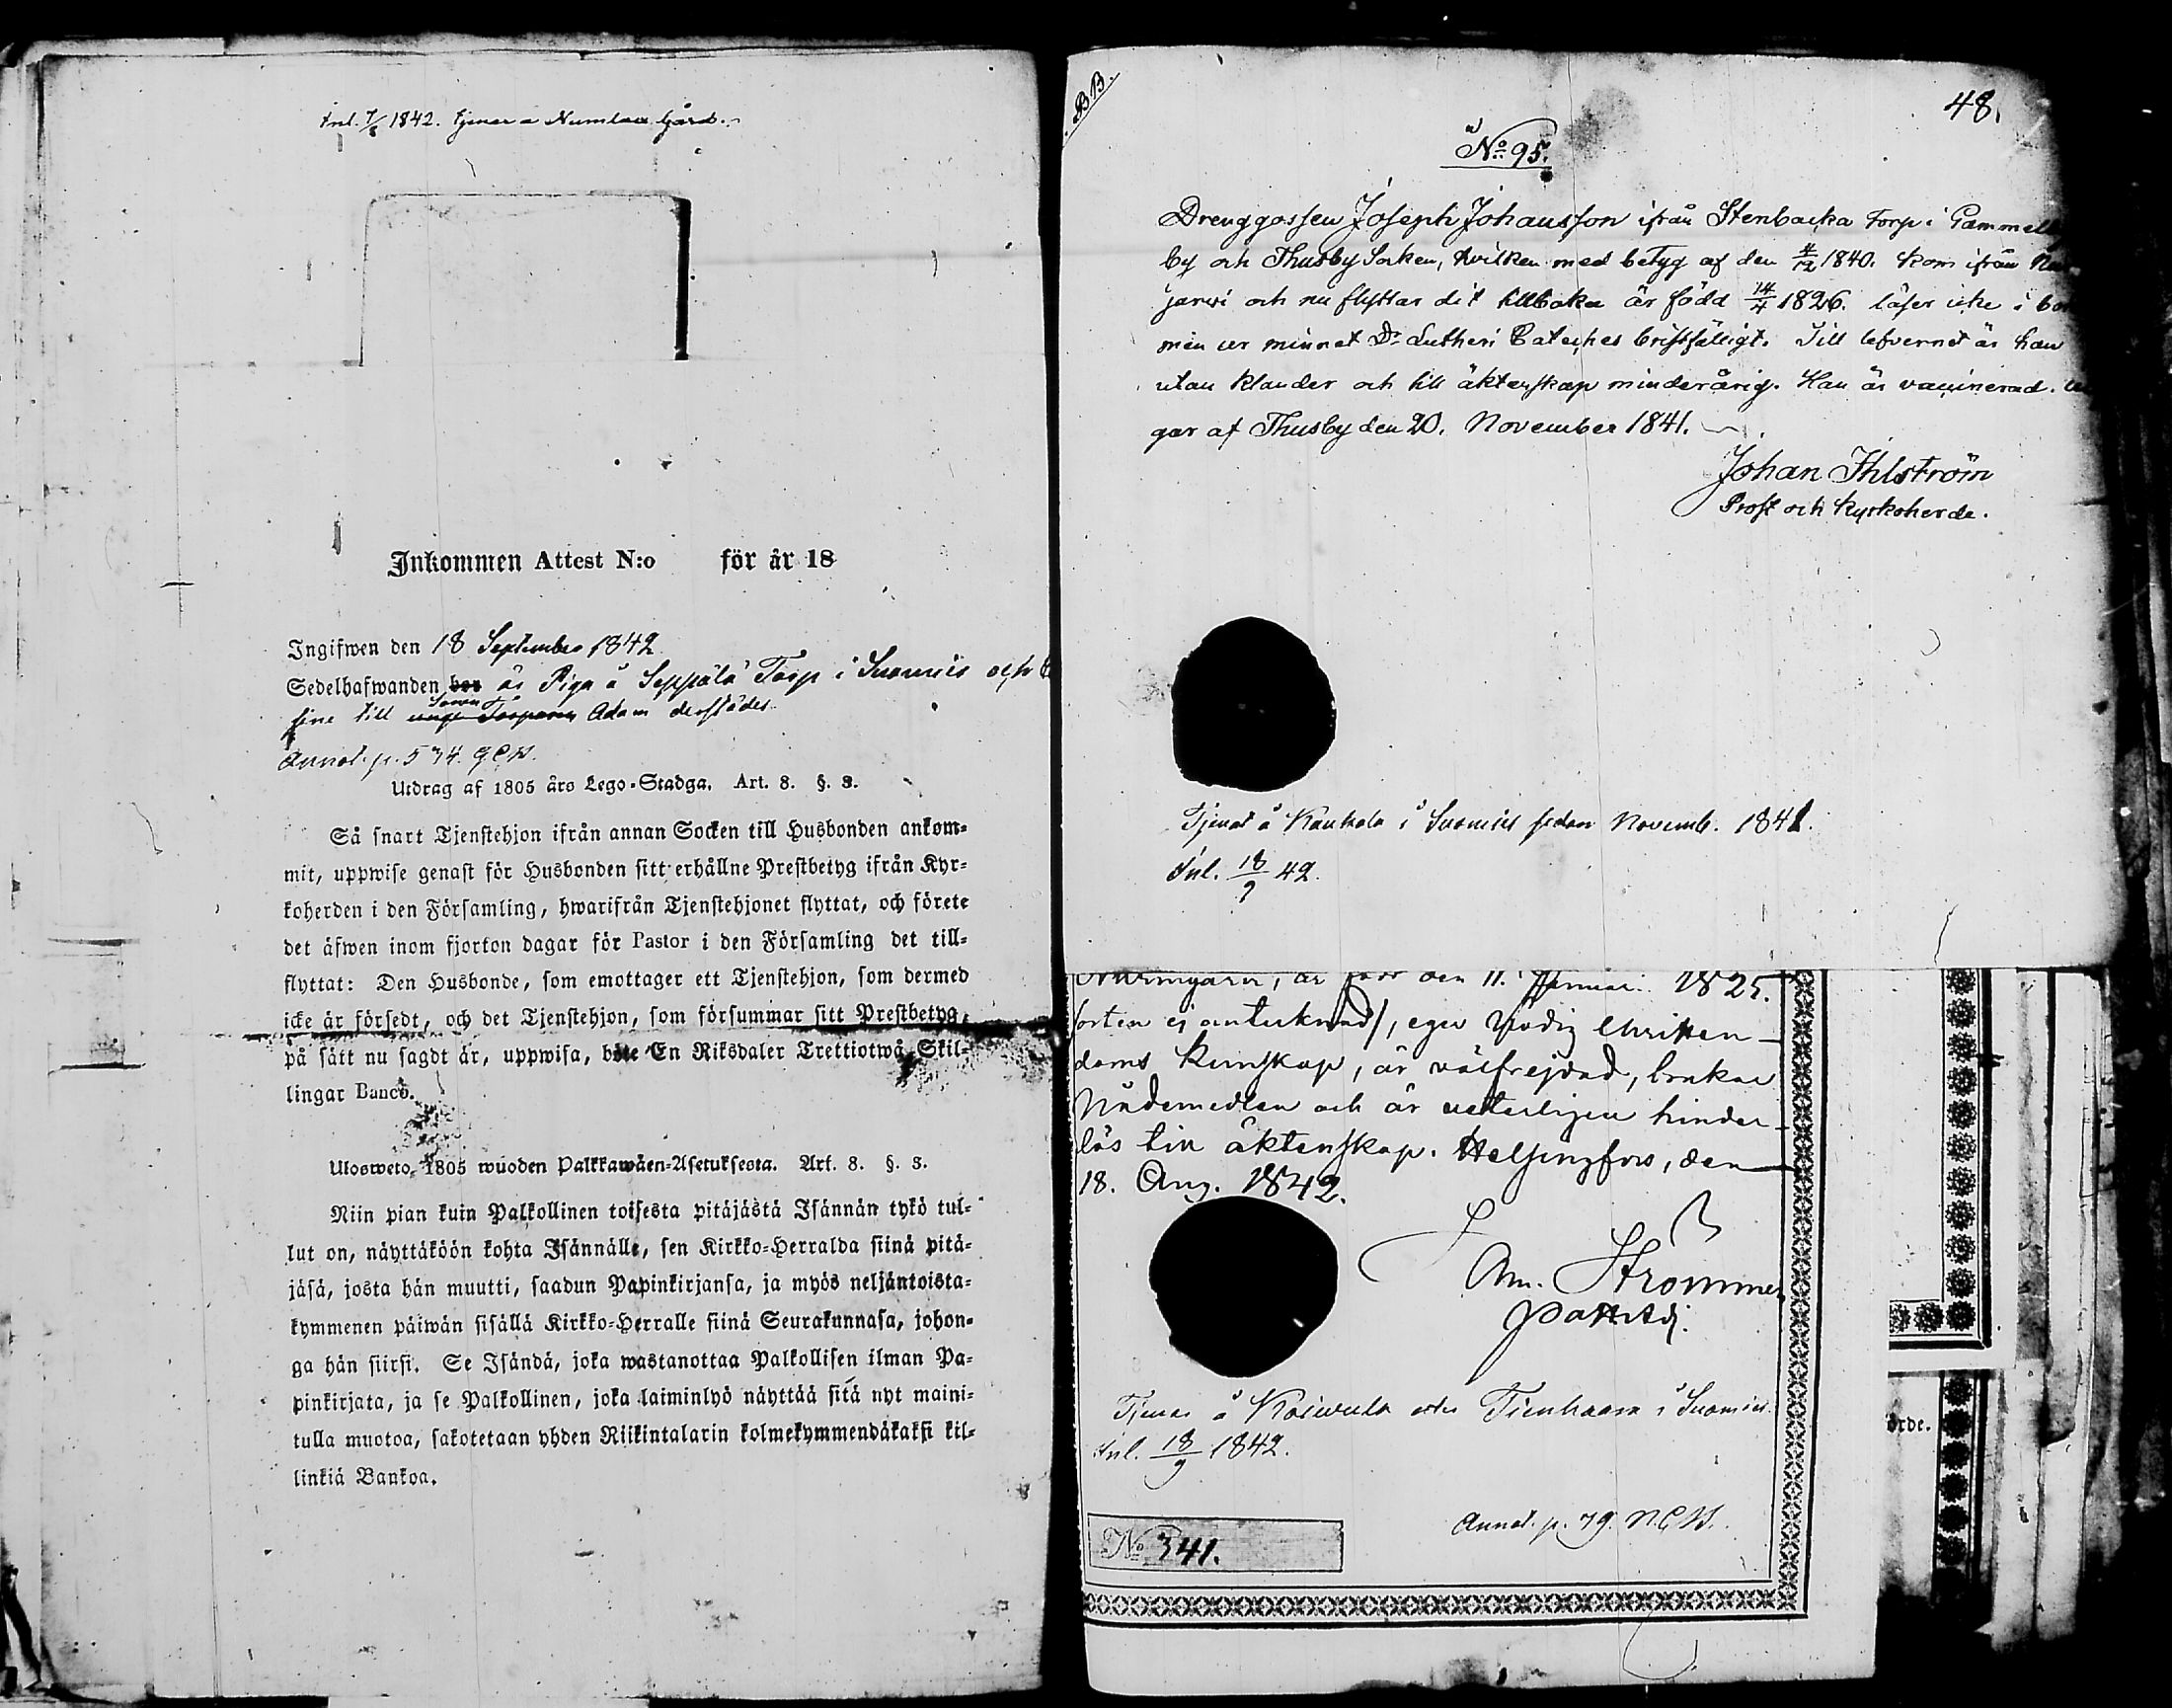 Inl. 7/8 1842. tjenar a Numlaa Gård.
Inkommen Attest N:o för år 18
Ingifwen den 18 September 1842
Sedelhafwanden bor är Piga å Seppälä Torp i Suomiis och
sine till unge Torparen Sonen Adam derstädes
Annot. p. 534.
Utdrag af 1805 års Lego-Stadga. Art. 8. §. 3.
Så snart Tjenstehjon ifrån annan Socken till Husbonden ankom-
mit, uppwise genast för Husbonden sitt erhållne Prestbetyg ifrån Kyr-
koherden i den Församling, hwarifrån Tjenstehjonet flyttat, och förete
det äfwen inom fjorton dagar för Pastor i den Församling det till-
flyttat: Den Husbonde, som emottager ett Tjenstehjon, som dermed
icke är försedt, och det Tjenstehjon, som försummar sitt Prestbetyg,
på sätt nu sagdt är, uppwisa, böte En Riksdaler Trettiotwå Skil-
lingar Banco.
Ulosweto, 1805 wuoden Palkkawäen-Asetuksesta. Art. 8. §. 3.
Niin pian kuin Palkollinen toisesta pitäjästä Isännän tykö tul-
lut on, näyttäköön kohta Isännälle, sen Kirkko-Herralda siinä pitä-
jäsä, josta hän muutti, saadun Papinkirjansa, ja myös neljäntoista-
kymmenen päiwän sisällä Kirkko-Herralle siinä Seurakunnasa, johon-
ga hän siirsi. Se Isändä, joka wastanottaa Palkollisen ilman Pa-
pinkirjata, ja se Palkollinen, joka laiminlyö näyttää sitä nyt maini-
tulla muotoa, sakotetaan yhden Riikintalarin kolmekymmendäkaksi kil-
linkiä Bankoa.
BB.
48.
No 95.
Drenggossen Joseph Johansson ifrån Stenbacka Torp i Gammel
by och Thusby Socken, hvilken med betyg af den 4/12 1840. kom ifrån Nur
jerwi och nu flyttar dit tillbaka är född 14/4 1826. läser icke i bok
men ur minnet Dr Lutheri Cateches bristfälligt. Till lefvernet är han
utan klander och till äktenskap minderårig. Han är vaccinerad.
gar af Thusby den 20. November 1841.
Johan Ihlström
Prost och Kyrkoherde.
Tjenat å Kaukola i Suomiis sedan Novemb. 1841.
Inl. 18/9 42.
är född den 11. Januari 1825.
orten ej antecknad), eger nödig christen-
doms kunskap, är välfrejdad, brukar
Nådemedlen och är veterligen hinder-
lös till äktenskap. Helsingfors, den
18. Aug. 1842.
Am. Strömmer
Past. Adj.
Tjenar å Koiwula eller Tienhaara i Suomiis.
Inl. 18/9 1842.
Annot. p. 79.
No 341.
örde.